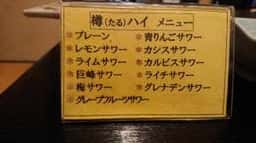 樽(たる)ハイ メニュー
プレーン
レモンサワー
ライムサワー
巨峰サワー
梅サワー
グレープフルーツサワー
青りんごサワー
カシスサワー
カルピスサワー
ライチサワー
グレナデンサワー